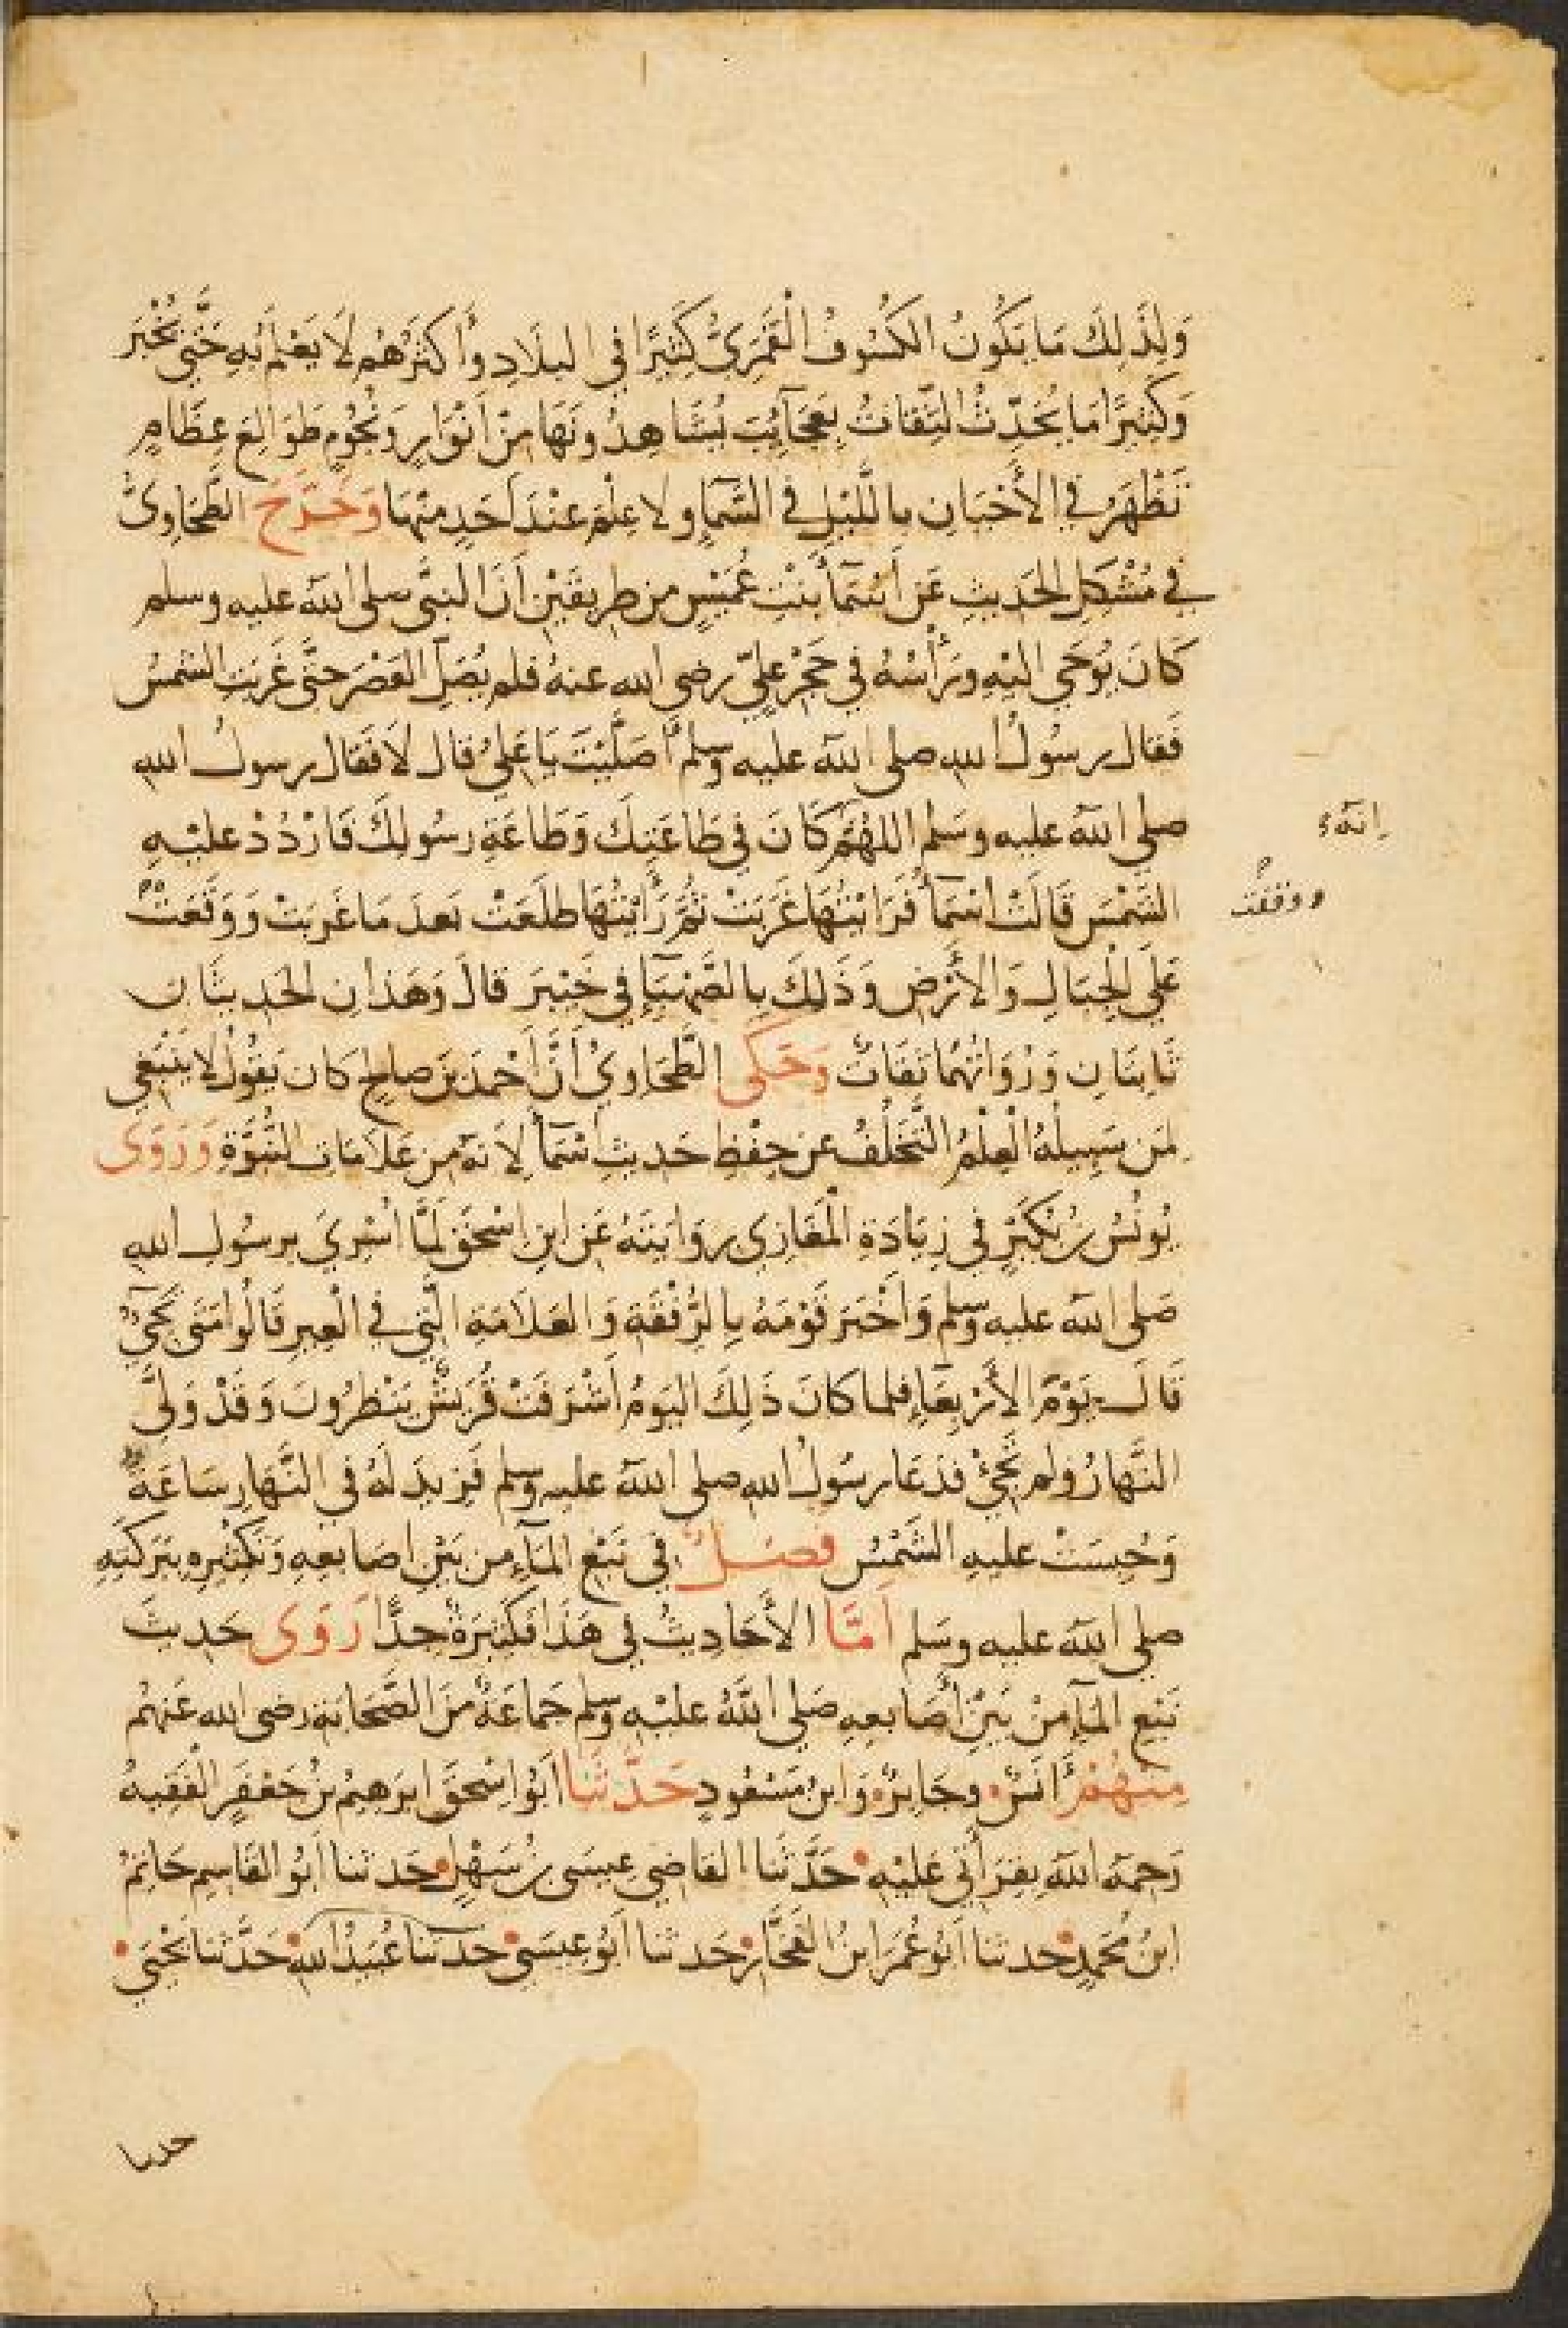 وَلِذَلِكَ مَا يَكُونُ الكُسُوفُ الْقَمَرِيُّ كَثِيرًا فِي البِلَادِ وَأَكْثَرُهُمْ لَا يَعْلَمُ بِهِ حَتَّى يُخْبَرَ
وَكَثِيرًا مَا يُحَدِّثُ الثِّقَاتُ بِعَجَآئِبَ يُشَاهِدُونَهَا مِنْ أَنْوَارٍ وَنُجُومٍ طَوَالِعَ عِظَامٍ
تَظْهَرُ فِي الأَحْيَانِ بِاللَّيْلِ فِي السَّمَاءِ ولا عِلْمَ عِنْدَ أَحَدٍ مِنْهَا وَخَرَّجَ الطَّحَاوِيُّ
فِي مُشْكِلِ الحَدِيثِ عَنْ أَسْمَآءَ بِنْتِ عُمَيْسٍ مِن طَرِيقَيْنِ أَنَّ النَّبِيَّ صلى الله عليه وسلم
كَانَ يُوحَى إِلَيْهِ وَرَأْسُهُ فِي حَجْرِ عَلِيٍّ رضى الله عنهُ فلم يُصَلِّ العَصْرَ حتَّى غَرَبَتِ الشَّمسُ
فَقَال رسُولُ الله صلى الله عليه وسلم أَصَلَّيْتَ يَا عَلِيُّ قال لَا فَقَال رسول الله
صلى الله عليه وسَلم اللَّهُمَّ كَانَ فِي طَاعَتِكَ وَطَاعَةِ رسُولِكَ فَارْدُدْ عليْهِ
انه
الشَّمْسَ قَالَتْ أَسْمَآءُ فَرَأَيْتُهَا غَرَبَتْ ثُمَّ رَأَيْتُهَا طَلَعَتْ بَعدَ مَا غَرَبَت وَوَقَعَتْ
ووقفت
عَلَى الْجِبَالِ وَالأَرْضِ وَذَلِكَ بِالصَّهْبَآءِ فِي خَيْبَرَ قَالَ وَهَذَانِ الحَدِيثَانِ
ثَابِتَانِ وَرُوَاتُهُمَا ثِقَاتٌ وَحَكَى الطَّحَاوِيُّ أَنَّ أَحْمَدَ بْنَ صَالِحٍ كان يَقُولُ لا يَنْبَغِي
لِمَن سَبِيلُهُ الْعِلْمُ التَّخَلُّفُ عن حِفْظِ حَدِيثِ أَسْمَآءَ لِأَنَّهُ مِن عَلَامَاتِ النُّبُوَّةِ وَرَوَى
يُونُسُ بْنُ بُكَيْرٍ فِي زِيَادَةِ الْمَغَازِي رِوَايَتَهُ عَن ابن إسْحَقَ لَمَّا أُسْرِيَ بِرسُولِ اللهِ
صَلى الله عليه وسلم وَأَخْبَرَ قَوْمَهُ بِالرُّفْقَةِ وَالعَلَامَةِ الَّتِي فِي الْعِيرِ قَالُوا مَتَى تَجِيءُ
قَالَ يَوْمَ الأَرْبِعَآءِ فلما كَانَ ذَلِكَ اليَومُ أَشْرَفَتْ قُرَيْشٌ يَنْظُرُونَ وَقَدْ وَلَّى
النَّهارُ ولم تَجِئْ فَدَعَا رسُولُ الله صلى الله عليه وسلم فَزِيدَ لَهُ فِي النَّهَارِ سَاعَةٌ
وَحُبِسَتْ عليهِ الشَّمْسُ فَصْلٌ فِي نَبْعِ المَآءِ مِن بَيْنِ أَصَابِعِهِ وَتَكْثِيرِهِ بِبَرَكَتِهِ
صلى الله عليه وسَلم أَمَّا الأَحَادِيثُ فِي هَذَا فَكَثِيرَةٌ جِدًّا رَوَى حَدِيثَ
نَبْعِ المَآءِ مِنْ بَيْنِ أَصَابِعِهِ صَلى اللهُ عليْهِ وسَلم جَمَاعَةٌ مِنَ الصَّحَابَةِ رضى الله عَنهُم
مِنْهُمْ أَنَسٌ وجَابِرٌ وَابنُ مَسْعُودٍ حَدَّثَنَا أَبُو إِسْحَقَ إِبْرَهِيمُ بْنُ جَعْفَرٍ الْفَقِيهُ
رَحِمَهُ اللهُ بِقِرَأَتِي عَلَيْهِ حَدَّثَنَا القَاضِي عِيسَى بْنُ سَهْلٍ حَدثنا أَبُو القَاسِم حَاتِمُ
ابنُ مُحَمدٍ حدثنا أَبُو عُمَرَ ابنُ الْفَخَّارِ حَدثنا أَبُو عِيسَى حدثنا عُبَيْدُ اللهِ حَدَّثنا يَحْيَى
حدثنا